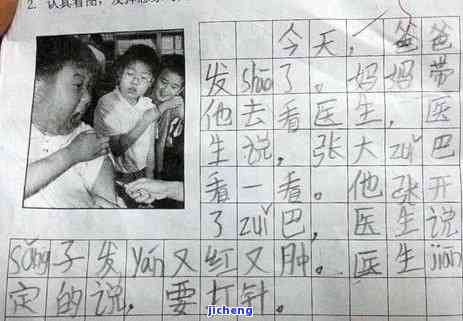 2. 认真看图，发挥想象
今天，爸爸
发shāo了。妈妈带
他去看医生，医
生说，张大zuǐ巴
看一看。他张开
了zuǐ巴，医生说
sǎng子发yán又红又肿。医生jiān
定的说，要打针。
jicheng